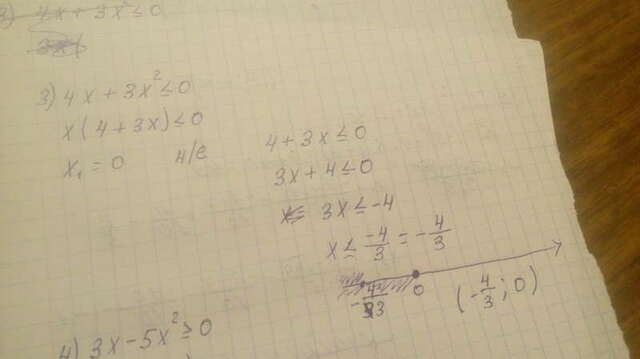 2) 4x + 3x² ≤ 0
3) 4x + 3x² ≤ 0
x(4 + 3x) ≤ 0
x₁ = 0 и/е
4 + 3x ≤ 0
3x + 4 ≤ 0
3x ≤ -4
x ≤ -4/3 = -4/3
-4/3 0 (-4/3; 0)
4) 3x - 5x² ≥ 0